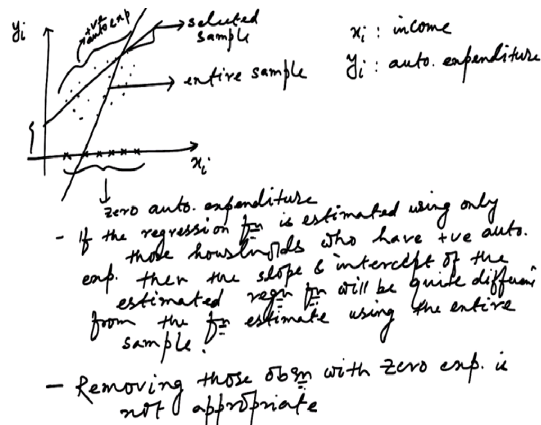 yi
+ve
auto exp
selected
sample
entire sample
xi
xi : income
yi : auto. expenditure
zero auto. expenditure
- If the regression fn is estimated using only
those households who have +ve auto.
exp. then the slope & intercept of the
estimated regn fn will be quite different
from the fn estimate using the entire
sample.
- Removing those obsn with zero exp. is
not appropriate